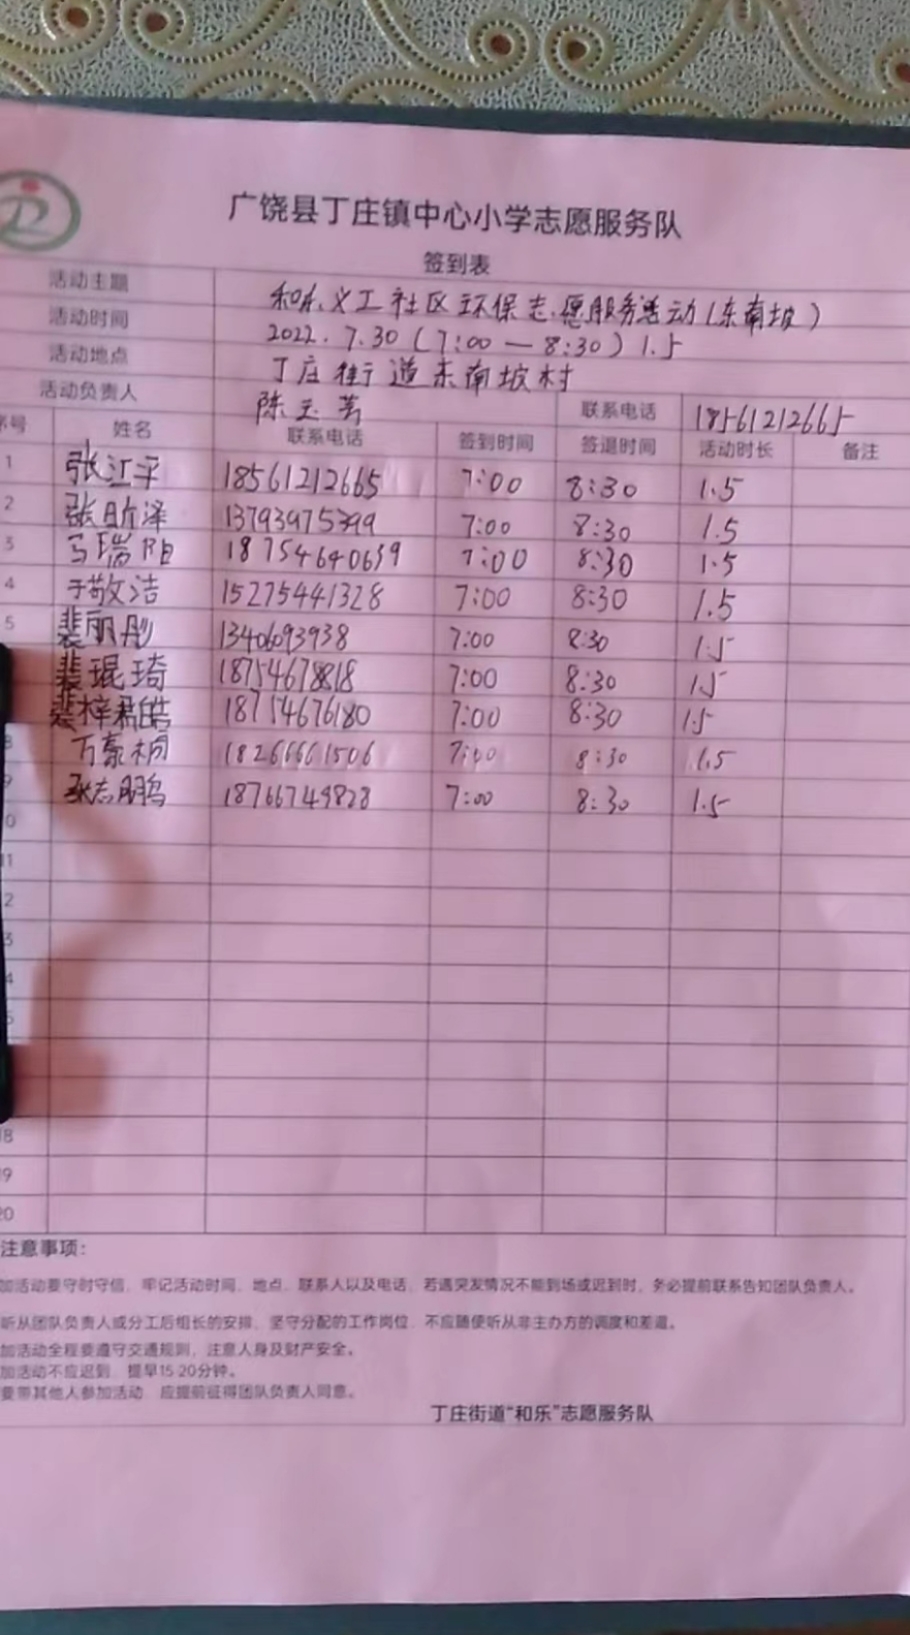 广饶县丁庄镇中心小学志愿服务队
签到表
活动主题 和乐义工社区环保志愿服务活动(东南坡)
活动时间 2022.7.30(7:00—8:30) 1.5
活动地点 丁庄街道东南坡村
活动负责人 陈玉 联系电话 18561212665
序号 姓名 联系电话 签到时间 签退时间 活动时长 备注
1 张江平 18561212665 7:00 8:30 1.5
2 张昕泽 13793975399 7:00 8:30 1.5
3 马瑞阳 18754640639 7:00 8:30 1.5
4 于敬洁 15275441328 7:00 8:30 1.5
5 裴丽彤 13406093938 7:00 8:30 1.5
裴琨琦 18754678818 7:00 8:30 1.5
裴梓君皓 18754676180 7:00 8:30 1.5
8 万豪桐 18266661506 7:00 8:30 1.5
9 张志鹏 18766749828 7:00 8:30 1.5
0
11
2
3
4
5
18
19
20
注意事项:
加活动要守时守信,牢记活动时间、地点、联系人以及电话,若遇突发情况不能到场或迟到时,务必提前联系告知团队负责人。
听从团队负责人或分工后组长的安排,坚守分配的工作岗位,不应随便听从非主办方的调度和差遣。
加活动全程要遵守交通规则,注意人身及财产安全。
加活动不应迟到,提早15-20分钟。
要带其他人参加活动,应提前征得团队负责人同意。
丁庄街道“和乐”志愿服务队